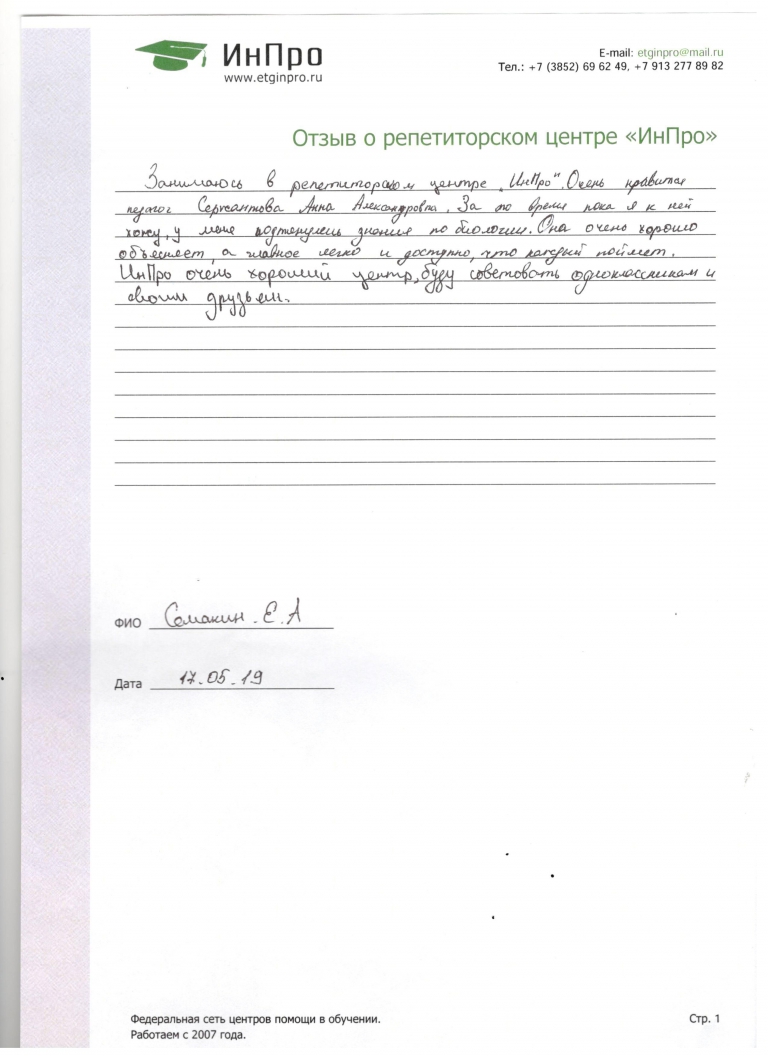 ИнПро
www.etginpro.ru
E-mail: etginpro@mail.ru
Тел.: +7 (3852) 69 62 49, +7 913 277 89 82
Отзыв о репетиторском центре «ИнПро»
Занимаюсь в репетиторском центре „ИнПро“. Очень нравится
педагог Сержантова Анна Александровна. За то время пока я к ней
хожу, у меня подтянулись знания по биологии. Она очень хорошо
объясняет, а главное легко и доступно, что каждый поймет.
ИнПро очень хороший центр, буду советовать одноклассникам и
своим друзьям.
ФИО Семакин. Е.А
Дата 17.05.19
Федеральная сеть центров помощи в обучении.
Работаем с 2007 года.
Стр. 1